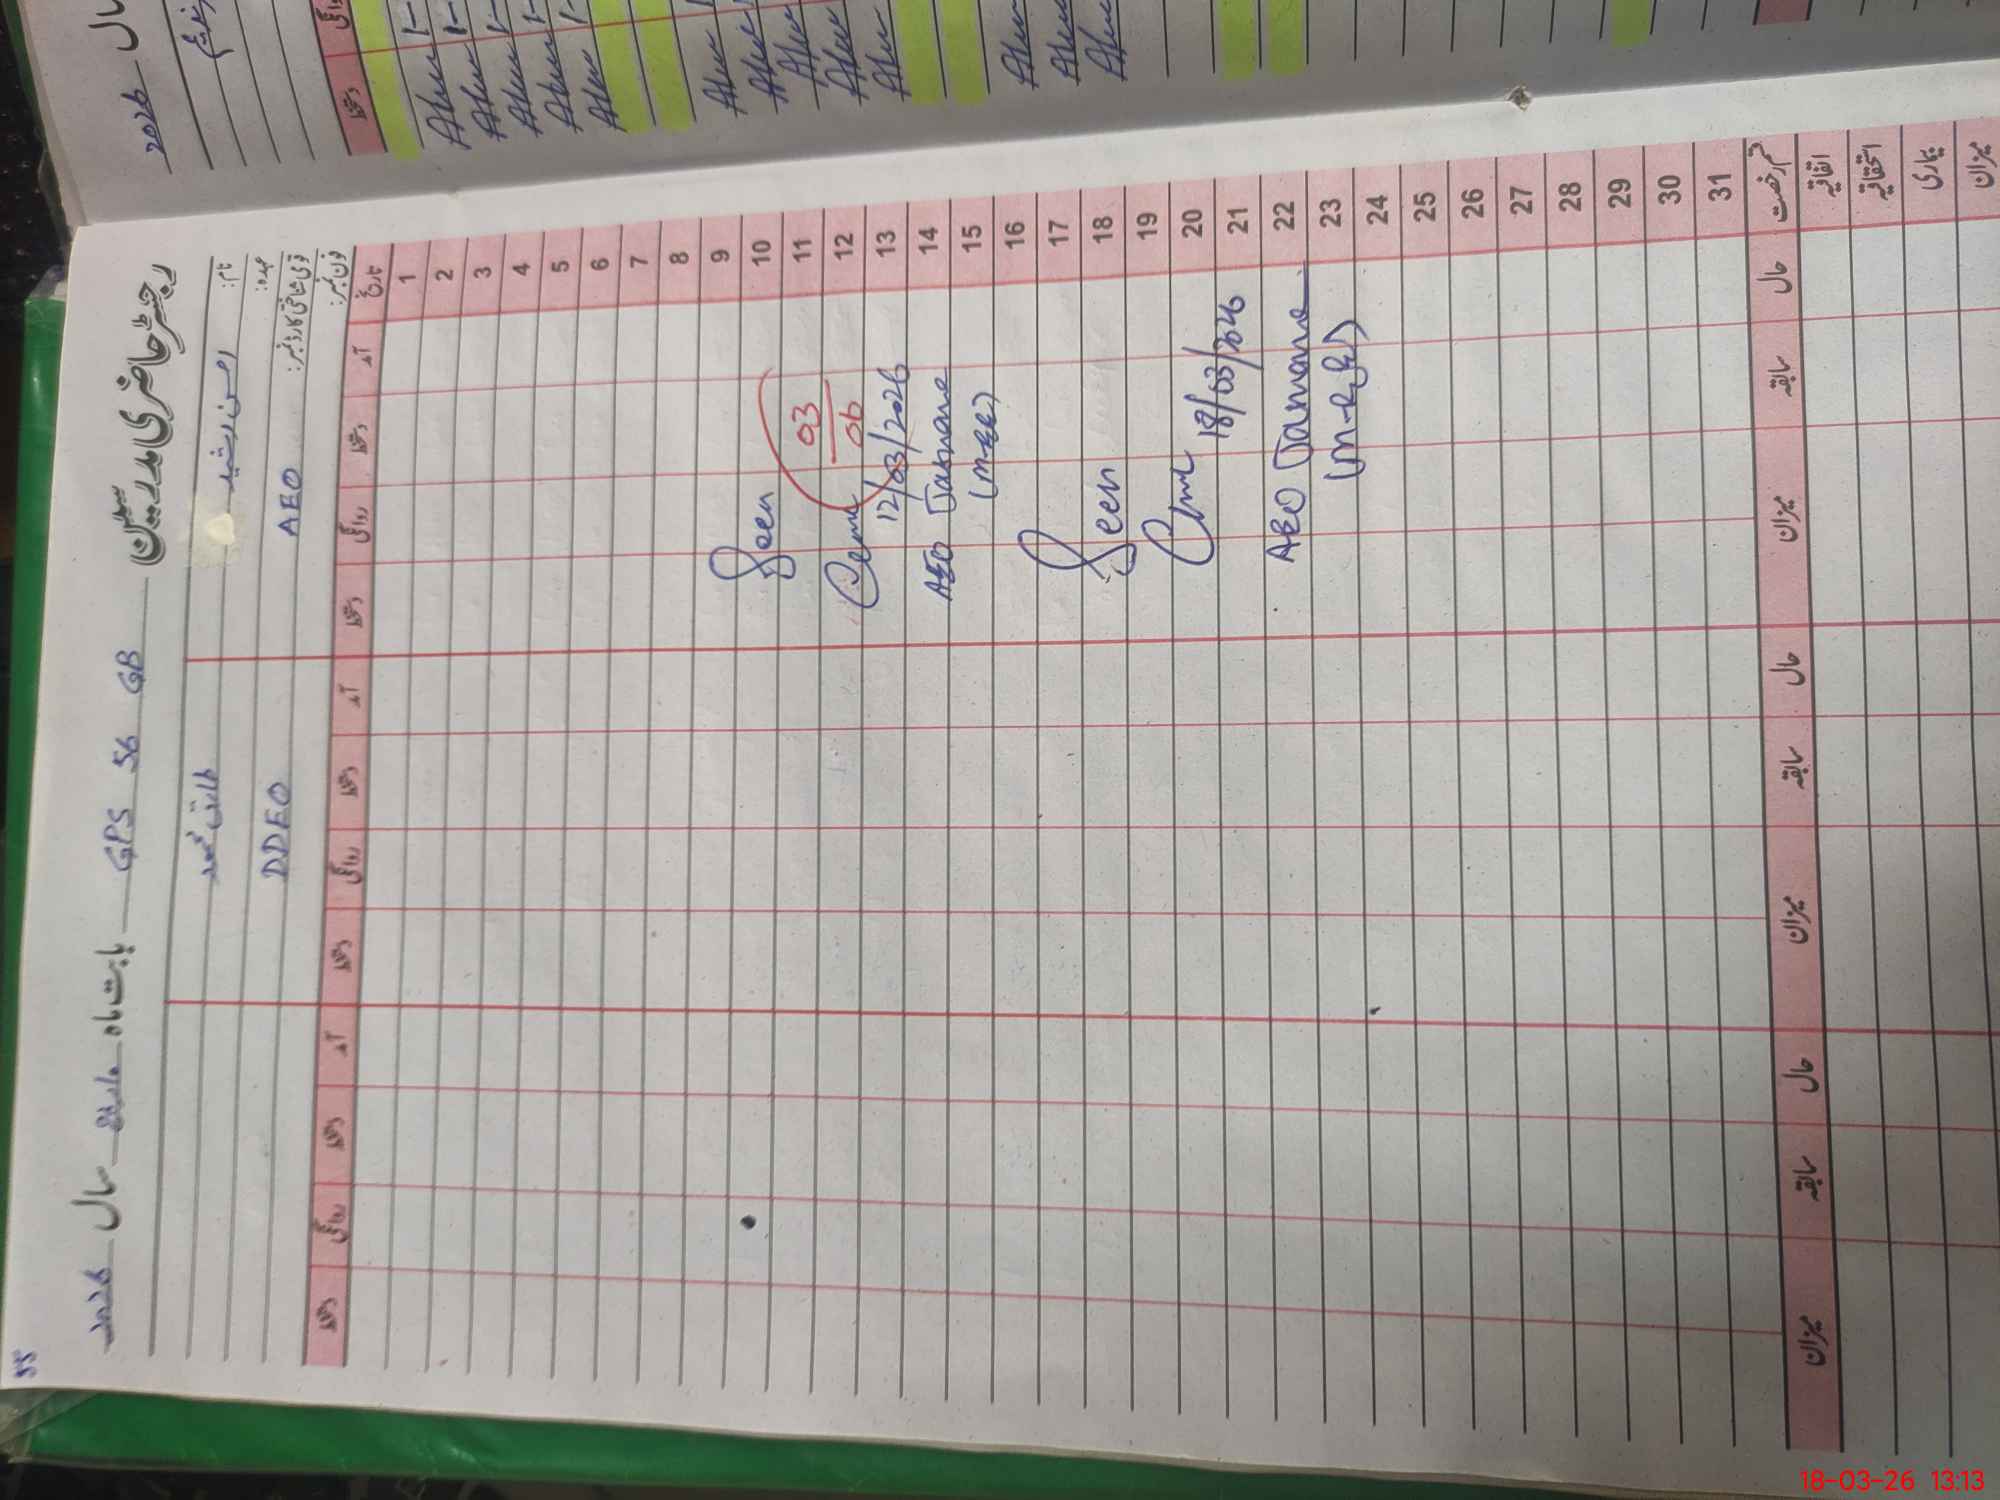 55
رجسٹر حاضری مدرسین GPS 56 GB بابت ماہ مارچ سال 2026
نام: احسن رشید
طارق محمود
عہدہ: AEO
DDEO
قومی شناختی کارڈ نمبر:
فون نمبر:
تاریخ آمد دستخط روانگی دستخط آمد دستخط روانگی دستخط آمد دستخط روانگی دستخط
1
2
3
4
5
6
7
8
9
10 Seen
11 03
12 06
13 12/03/2026
14 AEO
15
16
17
18 Seen
19
20
21 18/03/2026
22 AEO
23
24
25
26
27
28
29
30
31
قسم رخصت حال سابقہ میزان حال سابقہ میزان حال سابقہ میزان
اتفاقیہ
استحقاقیہ
بیماری
میزان
سال 2026
روانگی
دستخط
18-03-26 13:13